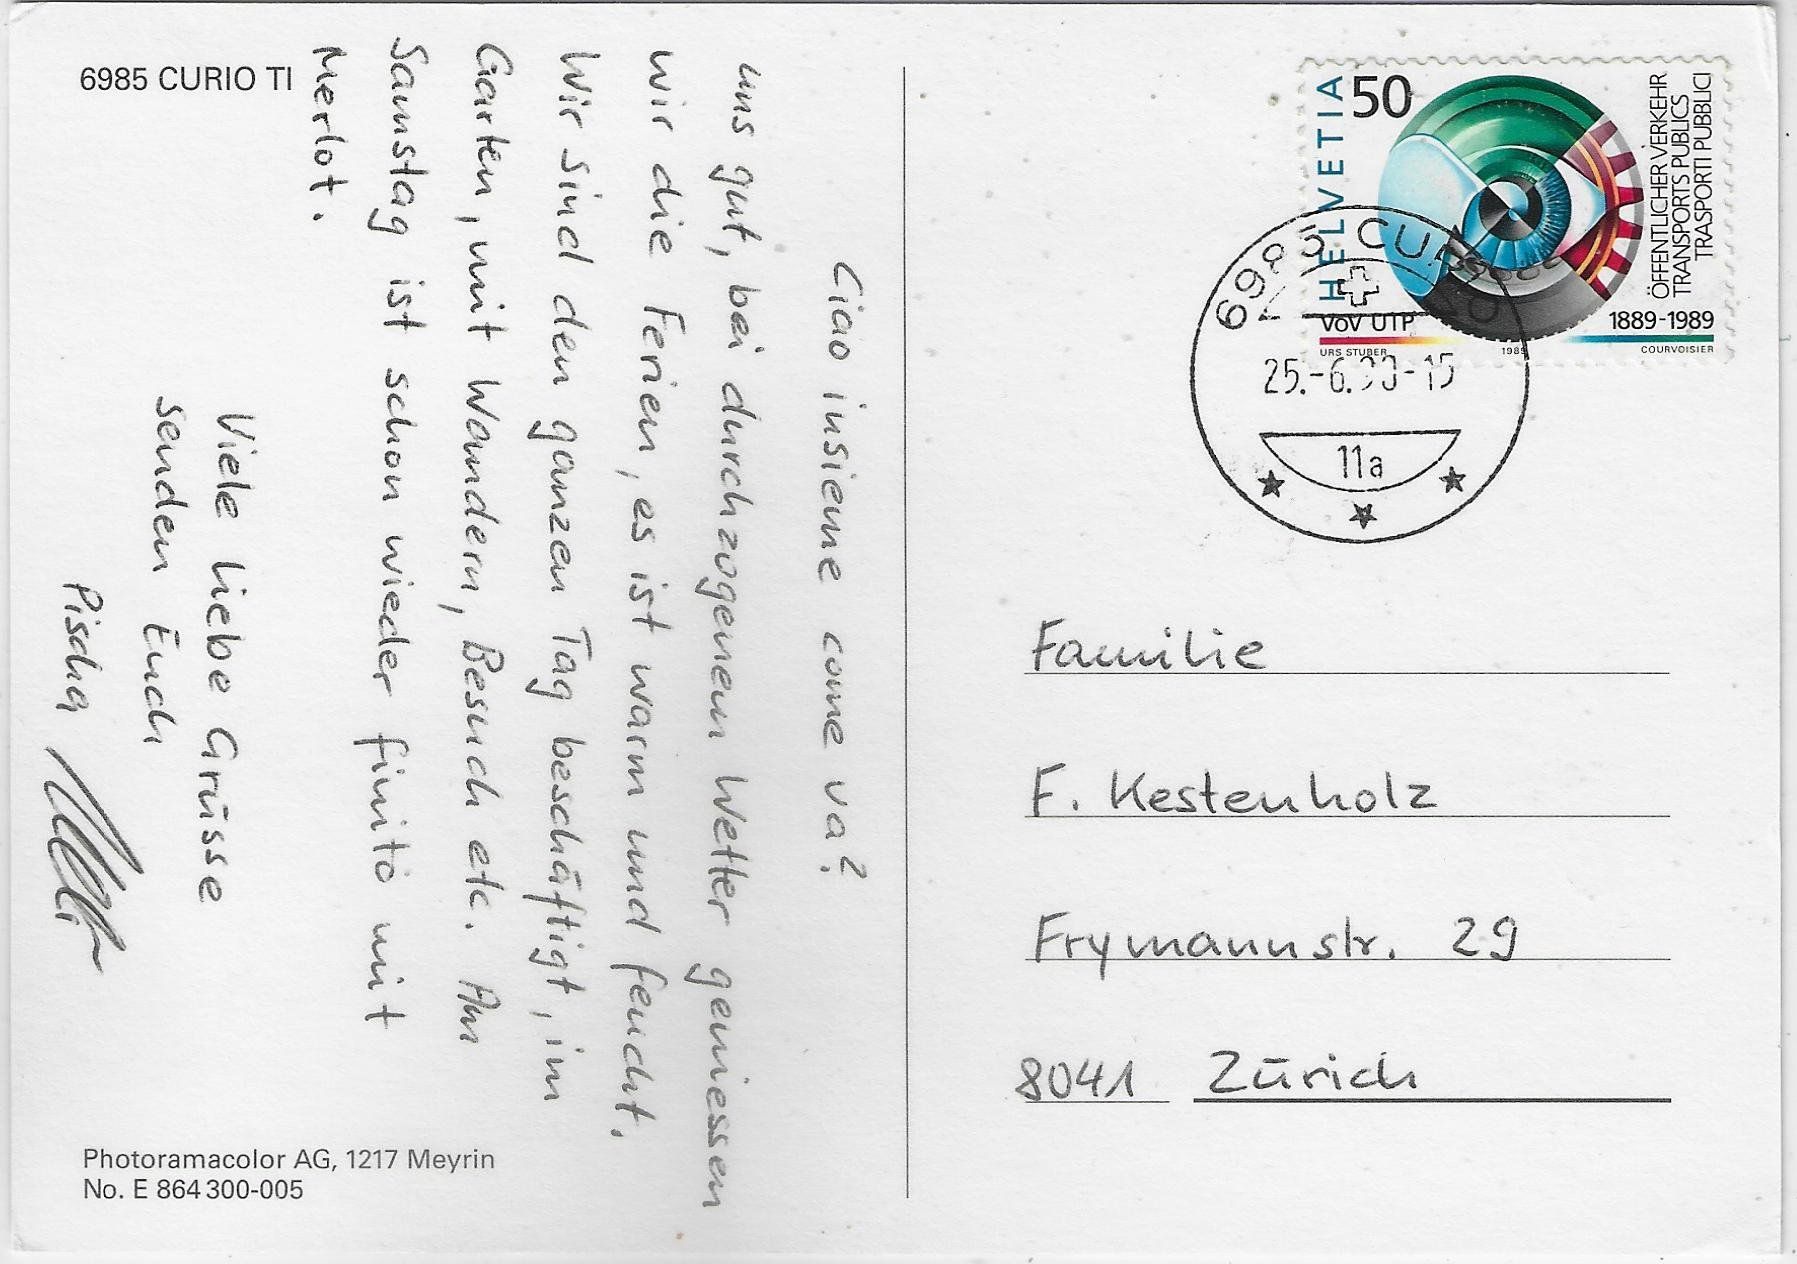 6985 CURIO TI
Ciao insieme come va?
uns gut, bei durchzogenem Wetter geniessen
wir die Ferien, es ist warm und feucht.
Wir sind den ganzen Tag beschäftigt, im
Garten, mit Wandern, Besuch etc. Am
Samstag ist schon wieder finito mit
Merlot.
Viele liebe Grüsse
senden Euch
Pischa
Photoramacolor AG, 1217 Meyrin
No. E 864 300-005
HELVETIA
50
ÖFFENTLICHER VERKEHR
TRANSPORTS PUBLICS
TRASPORTI PUBBLICI
VöV UTP
1889-1989
URS STUBER
1989
COURVOISIER
6985 CURIO
25.-6.90-15
11a
Familie
F. Kestenholz
Frymannstr. 29
8041 Zürich